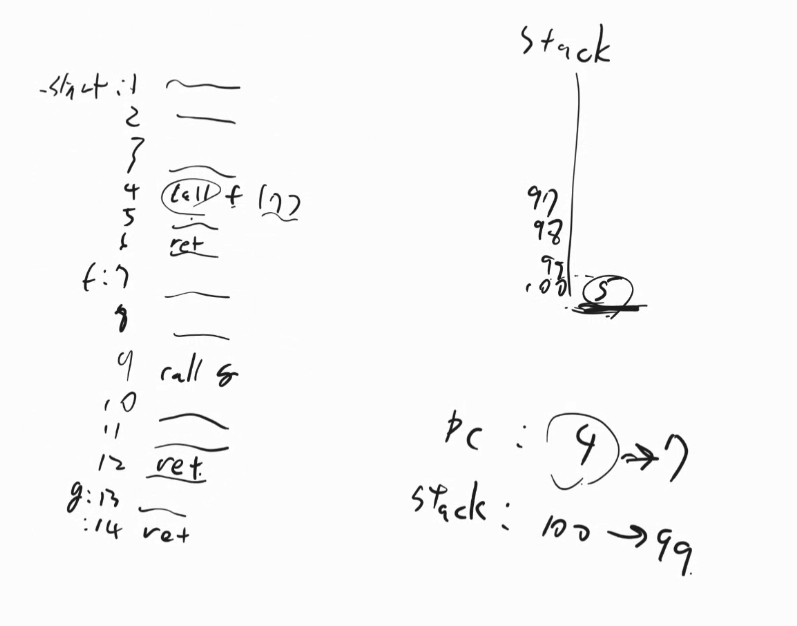 stack
_start:1
2
3
4 call f (7)
5
6 ret
f:7
8
9 call g
10
11
12 ret
g:13
:14 ret
97
98
99
100 5
pc : 4 → 7
stack : 100 → 99